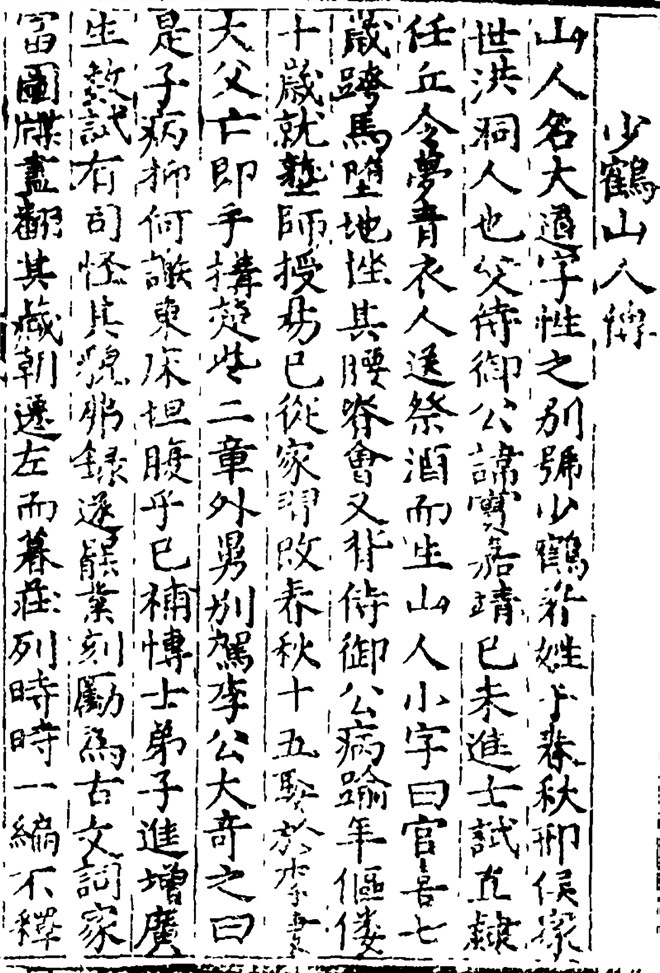 少鶴山人
山人名大道字性之別號少鶴祚姓于春秋邢侯家
世洪洞人也父侍御公諱寶嘉靖己未進士試直隸
任丘令夢青衣人送祭酒而生山人小字曰官喜七
歲跨馬墮地挫其腰脊會又背侍御公病踰年傴僂
十歲就塾師授易已從家習改春秋十五
大父亡即手搆楚些二章外舅別駕李公大奇之曰
是子病抑何謝東床坦腹乎已補博士弟子進增廣
生數試有司怪其貌弗錄遂業刻勵為古文詞家
富圖牒盡翻其藏朝遷左而暮莊列時時一編不釋